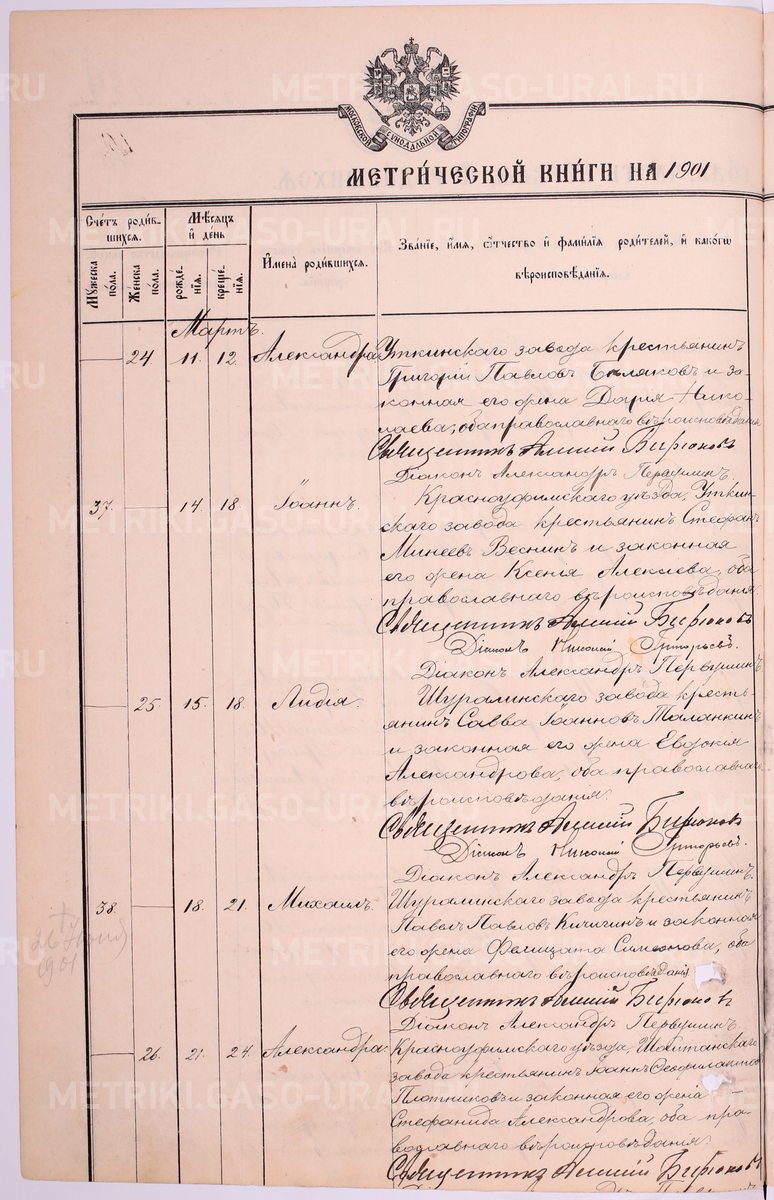 МОСКОВСКОЙ СУНОДАЛЬНОЙ ТИПОГРАФІИ
МЕТРИ́ЧЕСКОЙ КНИ́ГИ НА 1901
Сче́тъ роди́в-
шихся.
Мꙋжеска по́ла.
Же́нска по́ла.
Мѣ́сяцъ
и҆ де́нь
рожде́-
нїѧ.
креще́-
нїѧ.
И҆мена̀ роди́вшихся.
Зва́нїе, и҆́мѧ, ѻ҆́тчество и҆ фами́лїѧ роди́телей, и҆ како́гѡ
вѣроисповѣ́данїѧ.
Мартъ.
24 11. 12. Александра Уткинскаго завода крестьянинъ
Григорій Павловъ Бѣляковъ и за-
конная его жена Дарія Нико-
лаева, оба православнаго вѣроисповѣданія
Священникъ Бирюковъ
Діаконъ Александръ Первушинъ.
37. 14. 18. Іоаннъ. Красноуфимскаго уѣзда, Уткин-
скаго завода крестьянинъ Стефанъ
Минеевъ Веснинъ и законная
его жена Ксенія Алексѣева, оба
православнаго вѣроисповѣданія.
Священникъ Бирюковъ
Діаконъ Николай Григорьевъ.
Діаконъ Александръ Первушинъ
25 15. 18. Лидія. Шуралинскаго завода кресть-
янинъ Савва Іоанновъ Таланкинъ
и законная его жена Евдокія
Александрова, оба православнаго
вѣроисповѣданія.
Священникъ Бирюковъ
Діаконъ Николай Григорьевъ.
Діаконъ Александръ Первушинъ.
38. 18. 21. Михаилъ. Шуралинскаго завода крестьянинъ
Павелъ Павловъ Кичигинъ и законная
его жена Фелицата Симонова, оба
православнаго вѣроисповѣданія
1901
Священникъ Бирюковъ
Діаконъ Александръ Первушинъ.
26. 21. 24. Александра Красноуфимскаго уѣзда, Шайтанскаго
завода крестьянинъ Іоаннъ Ѳеофилактовъ
Плотниковъ и законная его жена
Стефанида Александрова, оба пра-
вославнаго вѣроисповѣданія.
Священникъ Бирюковъ
METRIKI.GASO-URAL.RU